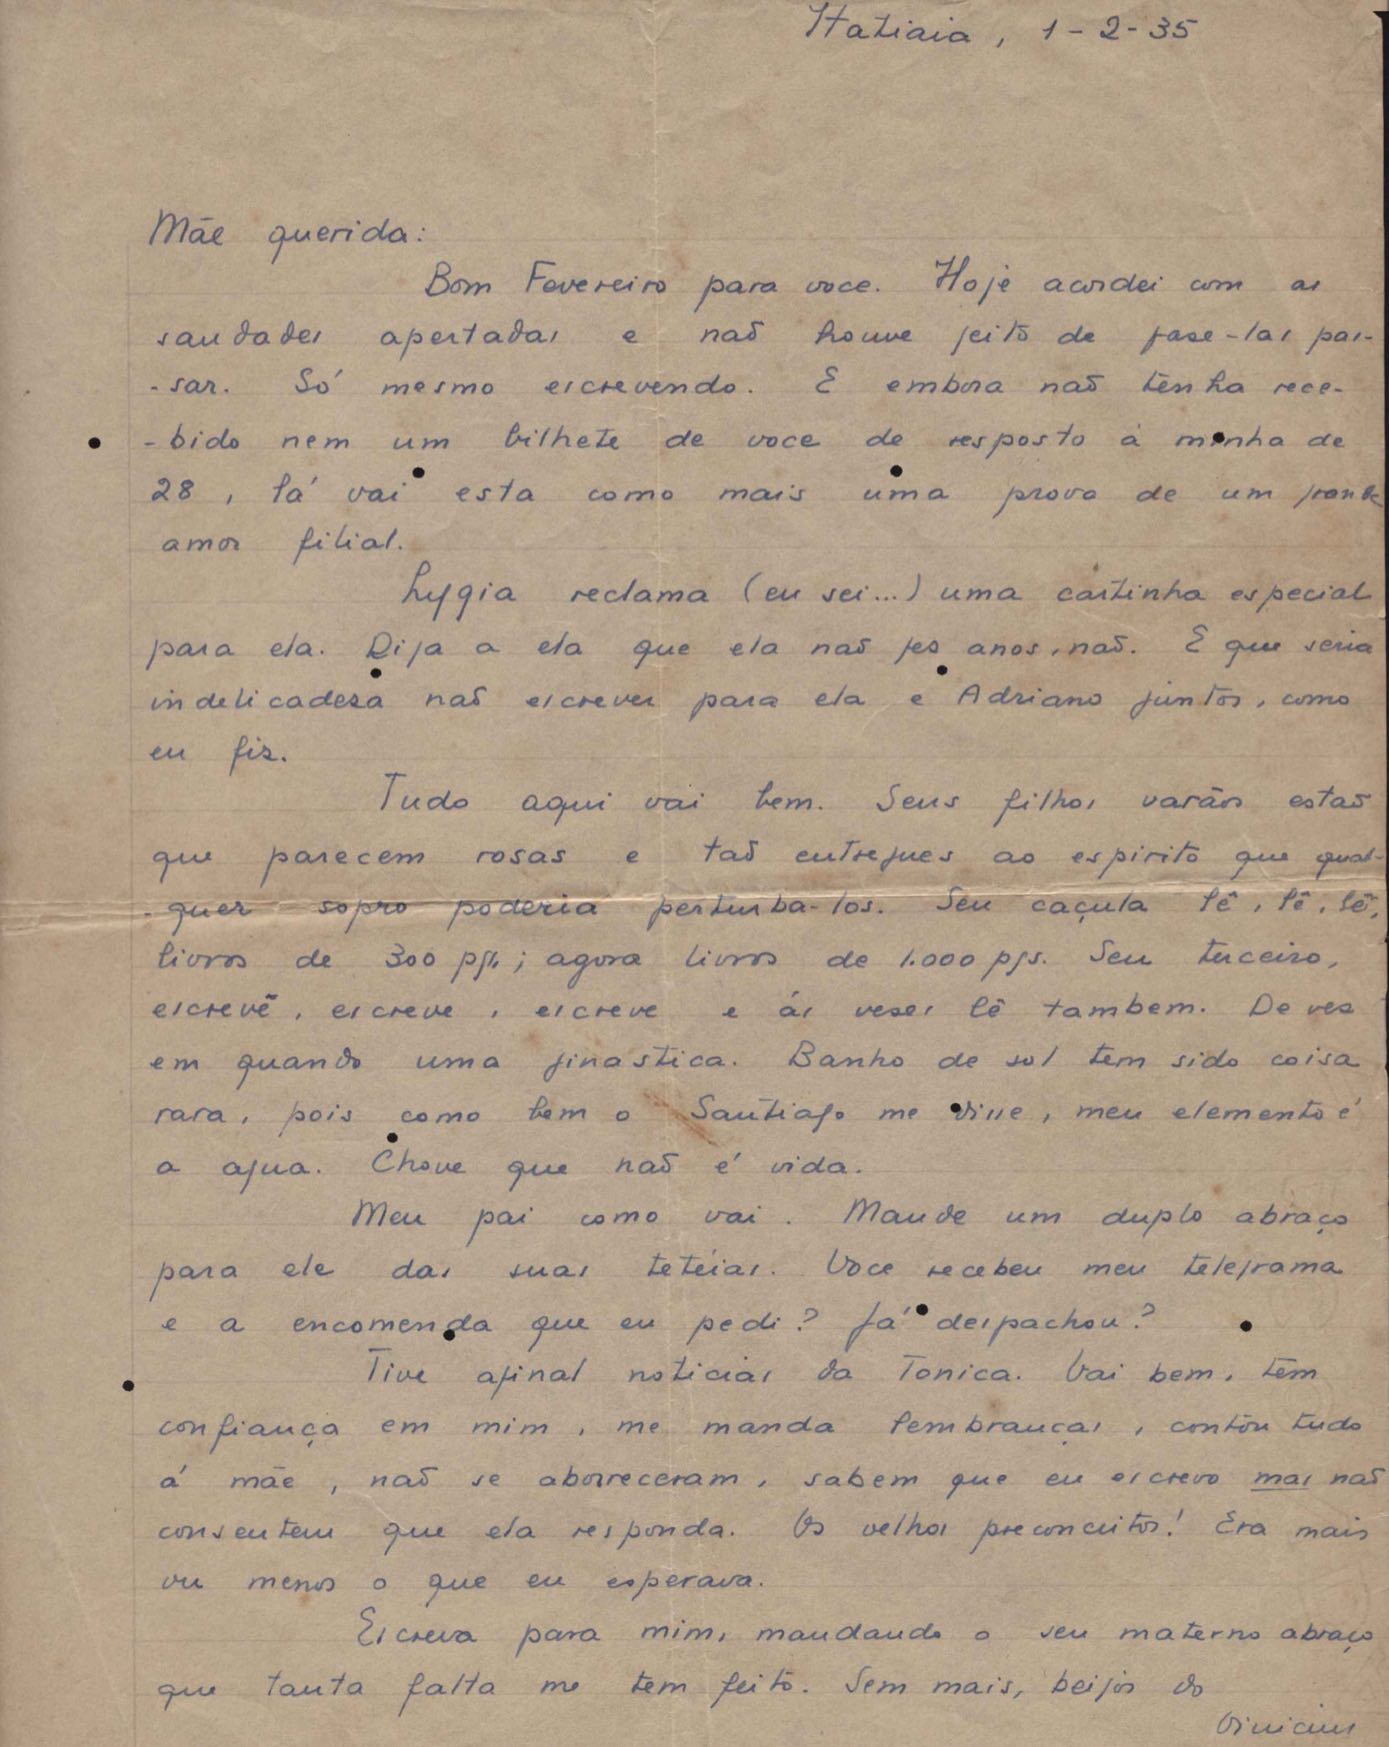 Itatiaia, 1-2-35
Mãe querida:
Bom Fevereiro para voce. Hoje acordei com as
saudades apertadas e naõ houve jeito de faze-las pas-
-sar. Só mesmo escrevendo. E embora naõ tenha rece-
-bido nem um bilhete de voce de resposta á minha de
28, lá vai esta como mais uma prova de um grande
amor filial.
Lygia reclama (eu sei...) uma cartinha especial
para ela. Diga a ela que ela naõ fez anos, naõ. E que seria
indelicadeza naõ escrever para ela e Adriano juntos, como
eu fiz.
Tudo aqui vai bem. Seus filhos varões estaõ
que parecem rosas e taõ entregues ao espirito que qual-
-quer sopro poderia perturba-los. Seu caçula lê, lê, lê,
livros de 300 pgs; agora livros de 1.000 pgs. Seu terceiro,
escreve, escreve, escreve e ás vezes lê tambem. De vez
em quando uma ginastica. Banho de sol tem sido coisa
rara, pois como bem o Santiago me disse, meu elemento é
a agua. Chove que naõ é vida.
Meu pai como vai. Mande um duplo abraço
para ele das suas tetéias. Voce recebeu meu telegrama
e a encomenda que eu pedi? Já despachou?
Tive afinal noticias da Tonica. Vai bem, tem
confiança em mim, me manda lembranças, contou tudo
á mãe, naõ se aborreceram, sabem que eu escrevo mas naõ
consentem que ela responda. Os velhos preconceitos! Era mais
ou menos o que eu esperava.
Escreva para mim, mandando o seu materno abraço
que tanta falta me tem feito. Sem mais, beijos do
Vinicius